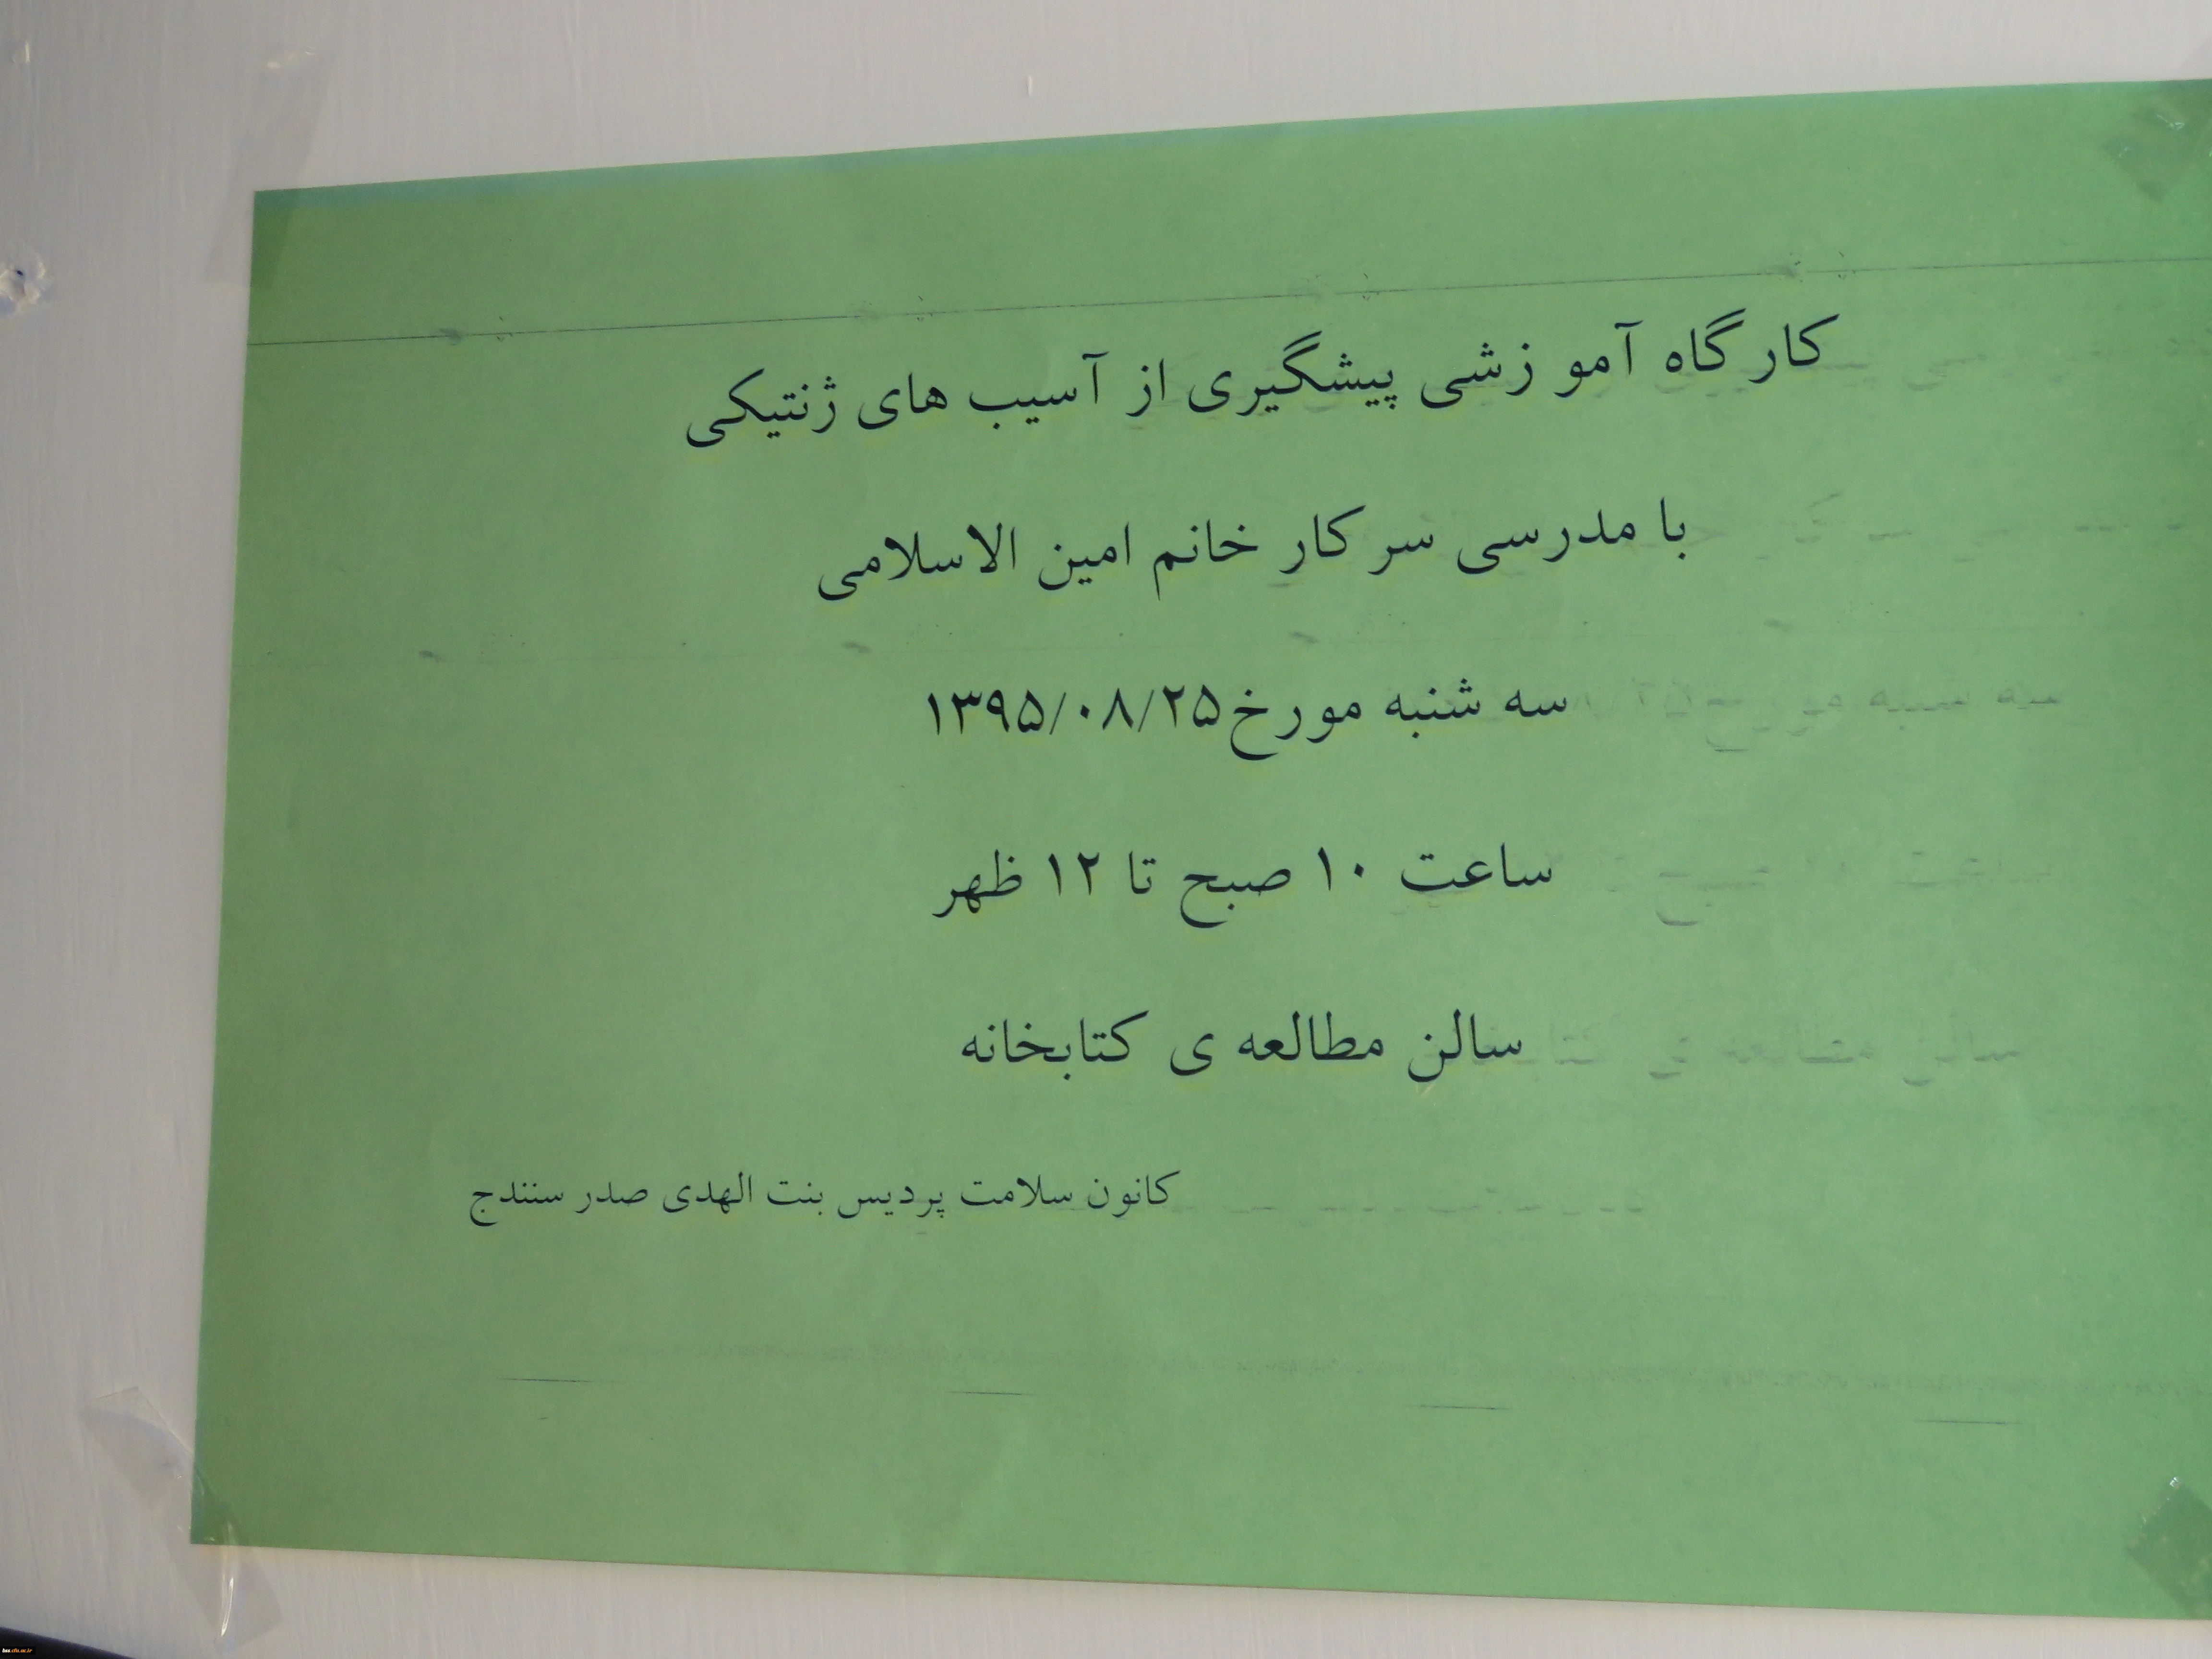 کارگاه آموزشی پیشگیری از آسیب های ژنتیکی
با مدرسی سرکار خانم امین الاسلامی
سه شنبه مورخ ۱۳۹۵/۰۸/۲۵
ساعت ۱۰ صبح تا ۱۲ ظهر
سالن مطالعه ی کتابخانه
کانون سلامت پردیس بنت الهدی صدر سنندج